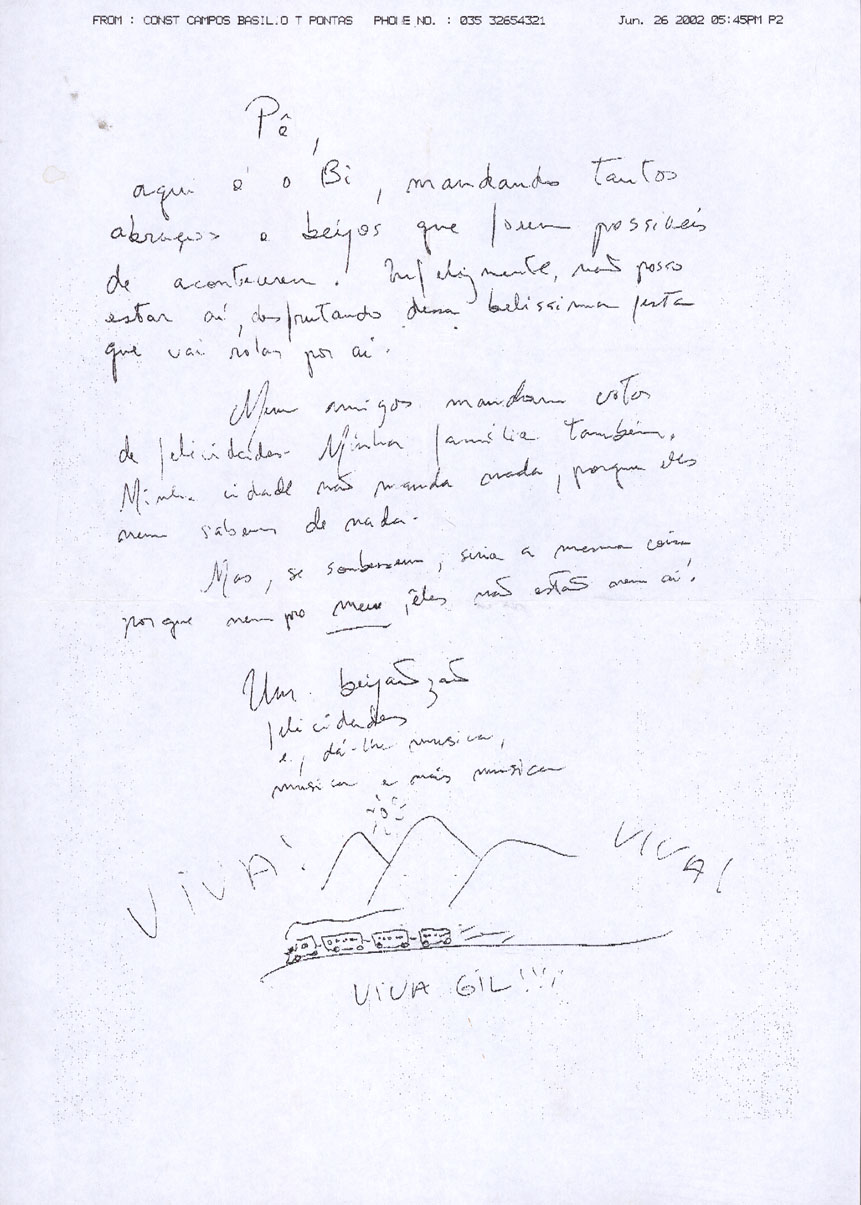 FROM : CONST CAMPOS BASIL.O T PONTAS PHONE NO. : 035 32654321 Jun. 26 2002 05:45PM P2
Pê,
aqui é o Bi, mandando tantos
abraços e beijos que forem possíveis
de acontecerem. Infelizmente, não posso
estar aí, desfrutando dessa belissima festa
que vai rolar por aí.
Meus amigos mandam votos
de felicidades. Minha família também.
Minha cidade não manda nada, porque eles
nem sabem de nada.
Mas, se soubessem, seria a mesma coisa
porque nem pro meu, eles não estão nem aí!
Um beijãozão
felicidades
e, dá-lhe musica,
música e mais musica
VIVA!
VIVA!
VIVA GIL!!!!